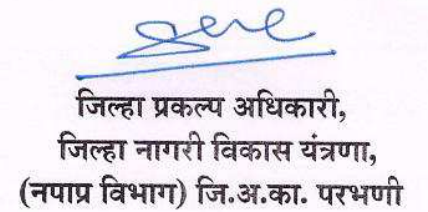 जिल्हा प्रकल्प अधिकारी,
जिल्हा नागरी विकास यंत्रणा,
(नपाप्र विभाग) जि.अ.का. परभणी